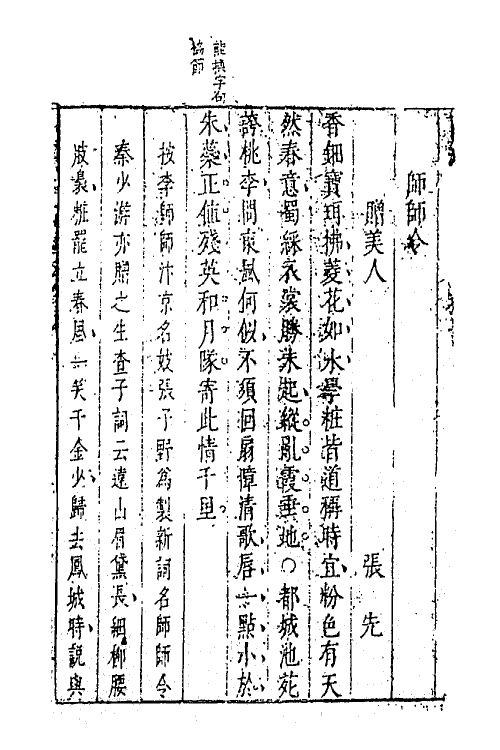 能換字句
協節
師師令
贈美人　張先
香鈿寶珥拂菱花如水學粧皆道稱時宜粉色有天
然春意蜀綵衣裳勝未起縱亂霞垂地○都城池苑
誇桃李問東風何似不須回扇障清歌唇一點小於
朱蘂正值殘英和月墜寄此情千里
按李師師汴京名妓張子野為製新詞名師師令
秦少游亦贈之生查子詞云遠山眉黛長細柳腰
肢裊粧罷立春風一笑千金少歸去鳳城時說與